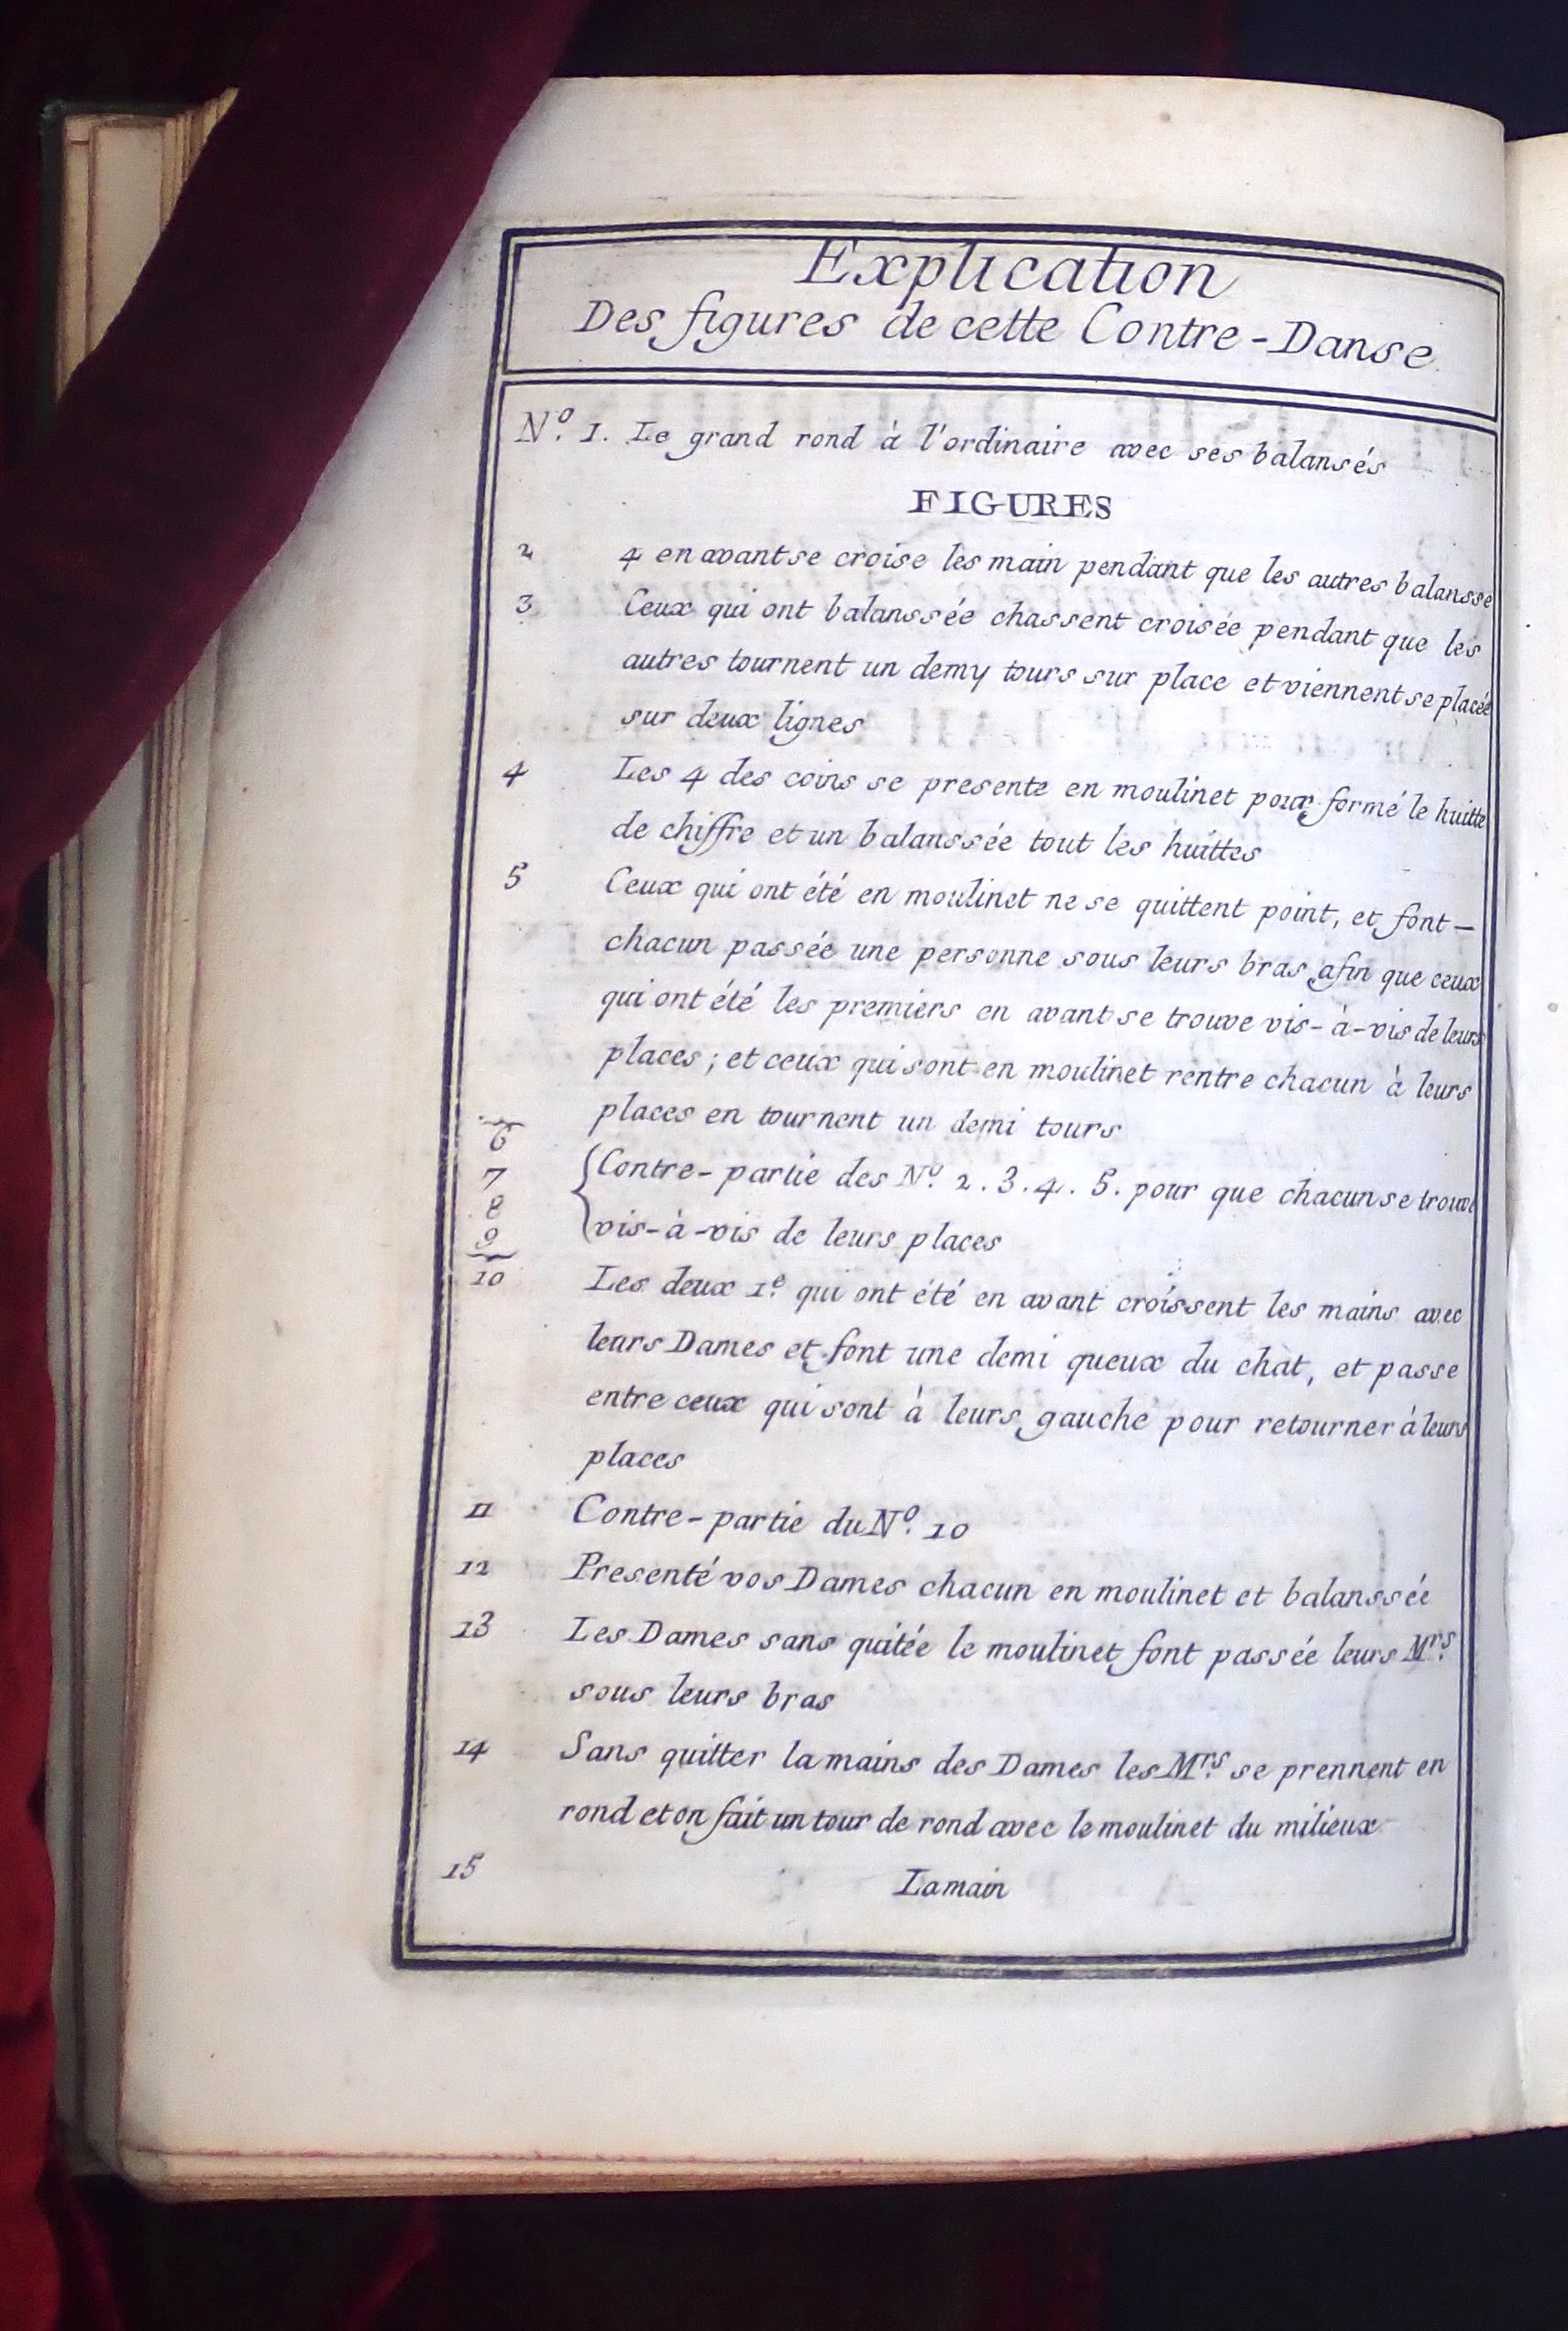 Explication
Des figures de cette Contre-Danse
Nº. 1. Le grand rond à l'ordinaire avec ses balansés
FIGURES
2 4 en avant se croise les main pendant que les autres balansse
3 Ceux qui ont balanssée chassent croisée pendant que les
autres tournent un demy tours sur place et viennent se placée
sur deux lignes
4 Les 4 des coins se presente en moulinet pour formé le huitte
de chiffre et un balanssée tout les huittes
5 Ceux qui ont été en moulinet ne se quittent point, et font—
chacun passée une personne sous leurs bras afin que ceux
qui ont été les premiers en avant se trouve vis-à-vis de leurs
places; et ceux qui sont en moulinet rentre chacun à leurs
places en tournent un demi tours
6
7 Contre-partie des Nº. 2. 3. 4. 5. pour que chacun se trouve
8
9 vis-à-vis de leurs places
10 Les deux 1e. qui ont été en avant croissent les mains avec
leurs Dames et font une demi queux du chat, et passe
entre ceux qui sont à leurs gauche pour retourner à leurs
places
11 Contre-partie du Nº. 10
12 Presenté vos Dames chacun en moulinet et balanssée
13 Les Dames sans quitée le moulinet font passée leurs Mrs.
sous leurs bras
14 Sans quitter la mains des Dames les Mrs. se prennent en
rond et on fait un tour de rond avec le moulinet du milieux
15 La main